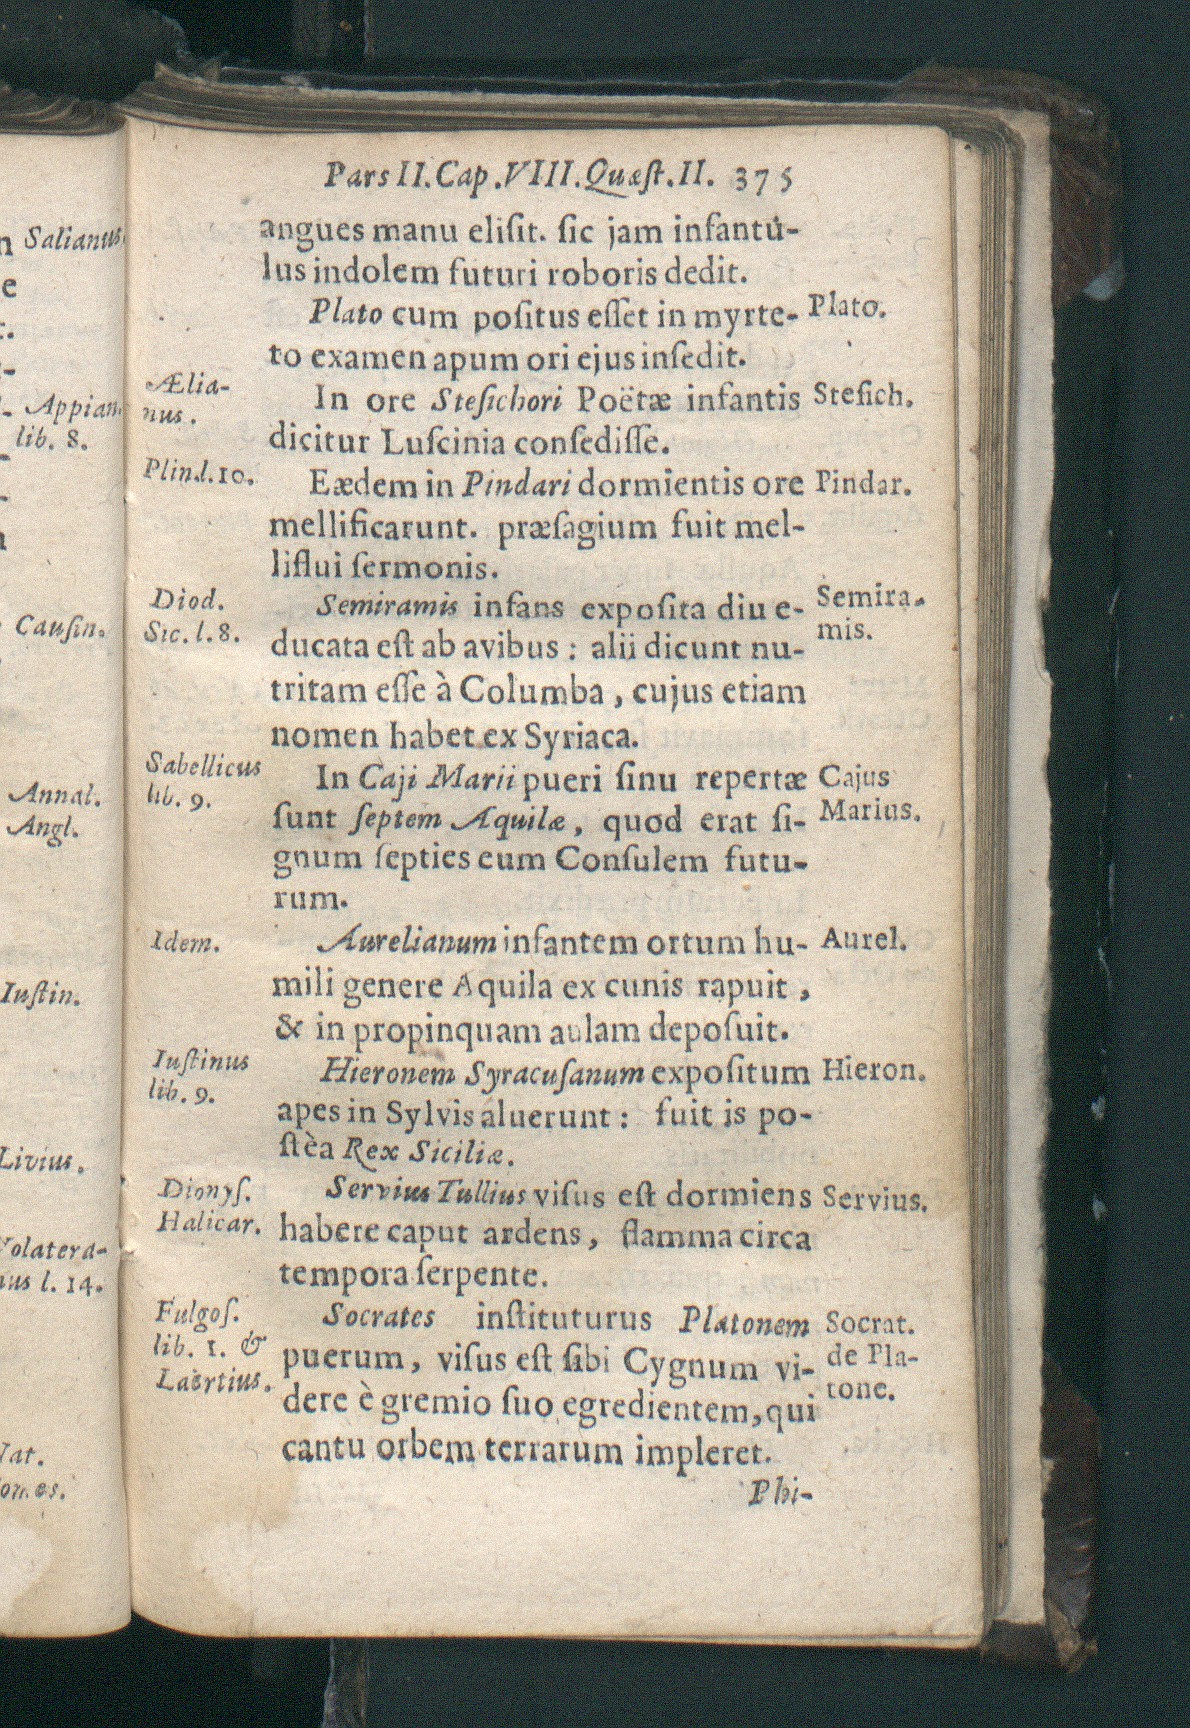 Pars II. Cap. VIII. Quæſt. II. 375
angues manu eliſit. ſic jam infantu-
lus indolem futuri roboris dedit.
Plato cum poſitus eſſet in myrte-
to examen apum ori ejus inſedit.
In ore Steſichori Poëtæ infantis
dicitur Luſcinia conſediſſe.
Eædem in Pindari dormientis ore
mellificarunt. præſagium fuit mel-
liflui ſermonis.
Semiramis infans expoſita diu e-
ducata eſt ab avibus : alii dicunt nu-
tritam eſſe à Columba , cujus etiam
nomen habet ex Syriaca.
In Caji Marii pueri ſinu repertæ
ſunt ſeptem Aquilæ, quod erat ſi-
gnum ſepties eum Conſulem futu-
rum.
Aurelianum infantem ortum hu-
mili genere Aquila ex cunis rapuit ,
& in propinquam aulam depoſuit.
Hieronem Syracuſanum expoſitum
apes in Sylvis aluerunt : fuit is po-
ſtèa Rex Siciliæ.
Servius Tullius viſus eſt dormiens
habere caput ardens, flamma circa
tempora ſerpente.
Socrates inſtituturus Platonem
puerum, viſus eſt ſibi Cygnum vi-
dere è gremio ſuo egredientem, qui
cantu orbem terrarum impleret.
Phi-
Ælia-
nus.
Plin. l. 10.
Diod.
Sic. l. 8.
Sabellicus
lib. 9.
Idem.
Iuſtinus
lib. 9.
Dionyſ.
Halicar.
Fulgoſ.
lib. 1. &
Laërtius.
Plato.
Steſich.
Pindar.
Semira-
mis.
Cajus
Marius.
Aurel.
Hieron.
Servius.
Socrat.
de Pla-
tone.
Salianus
Appian.
lib. 8.
Cauſin.
Annal.
Angl.
Iuſtin.
Livius.
Volatera-
nus l. 14.